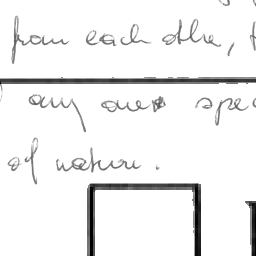 from each other,
any one spec
of nature.